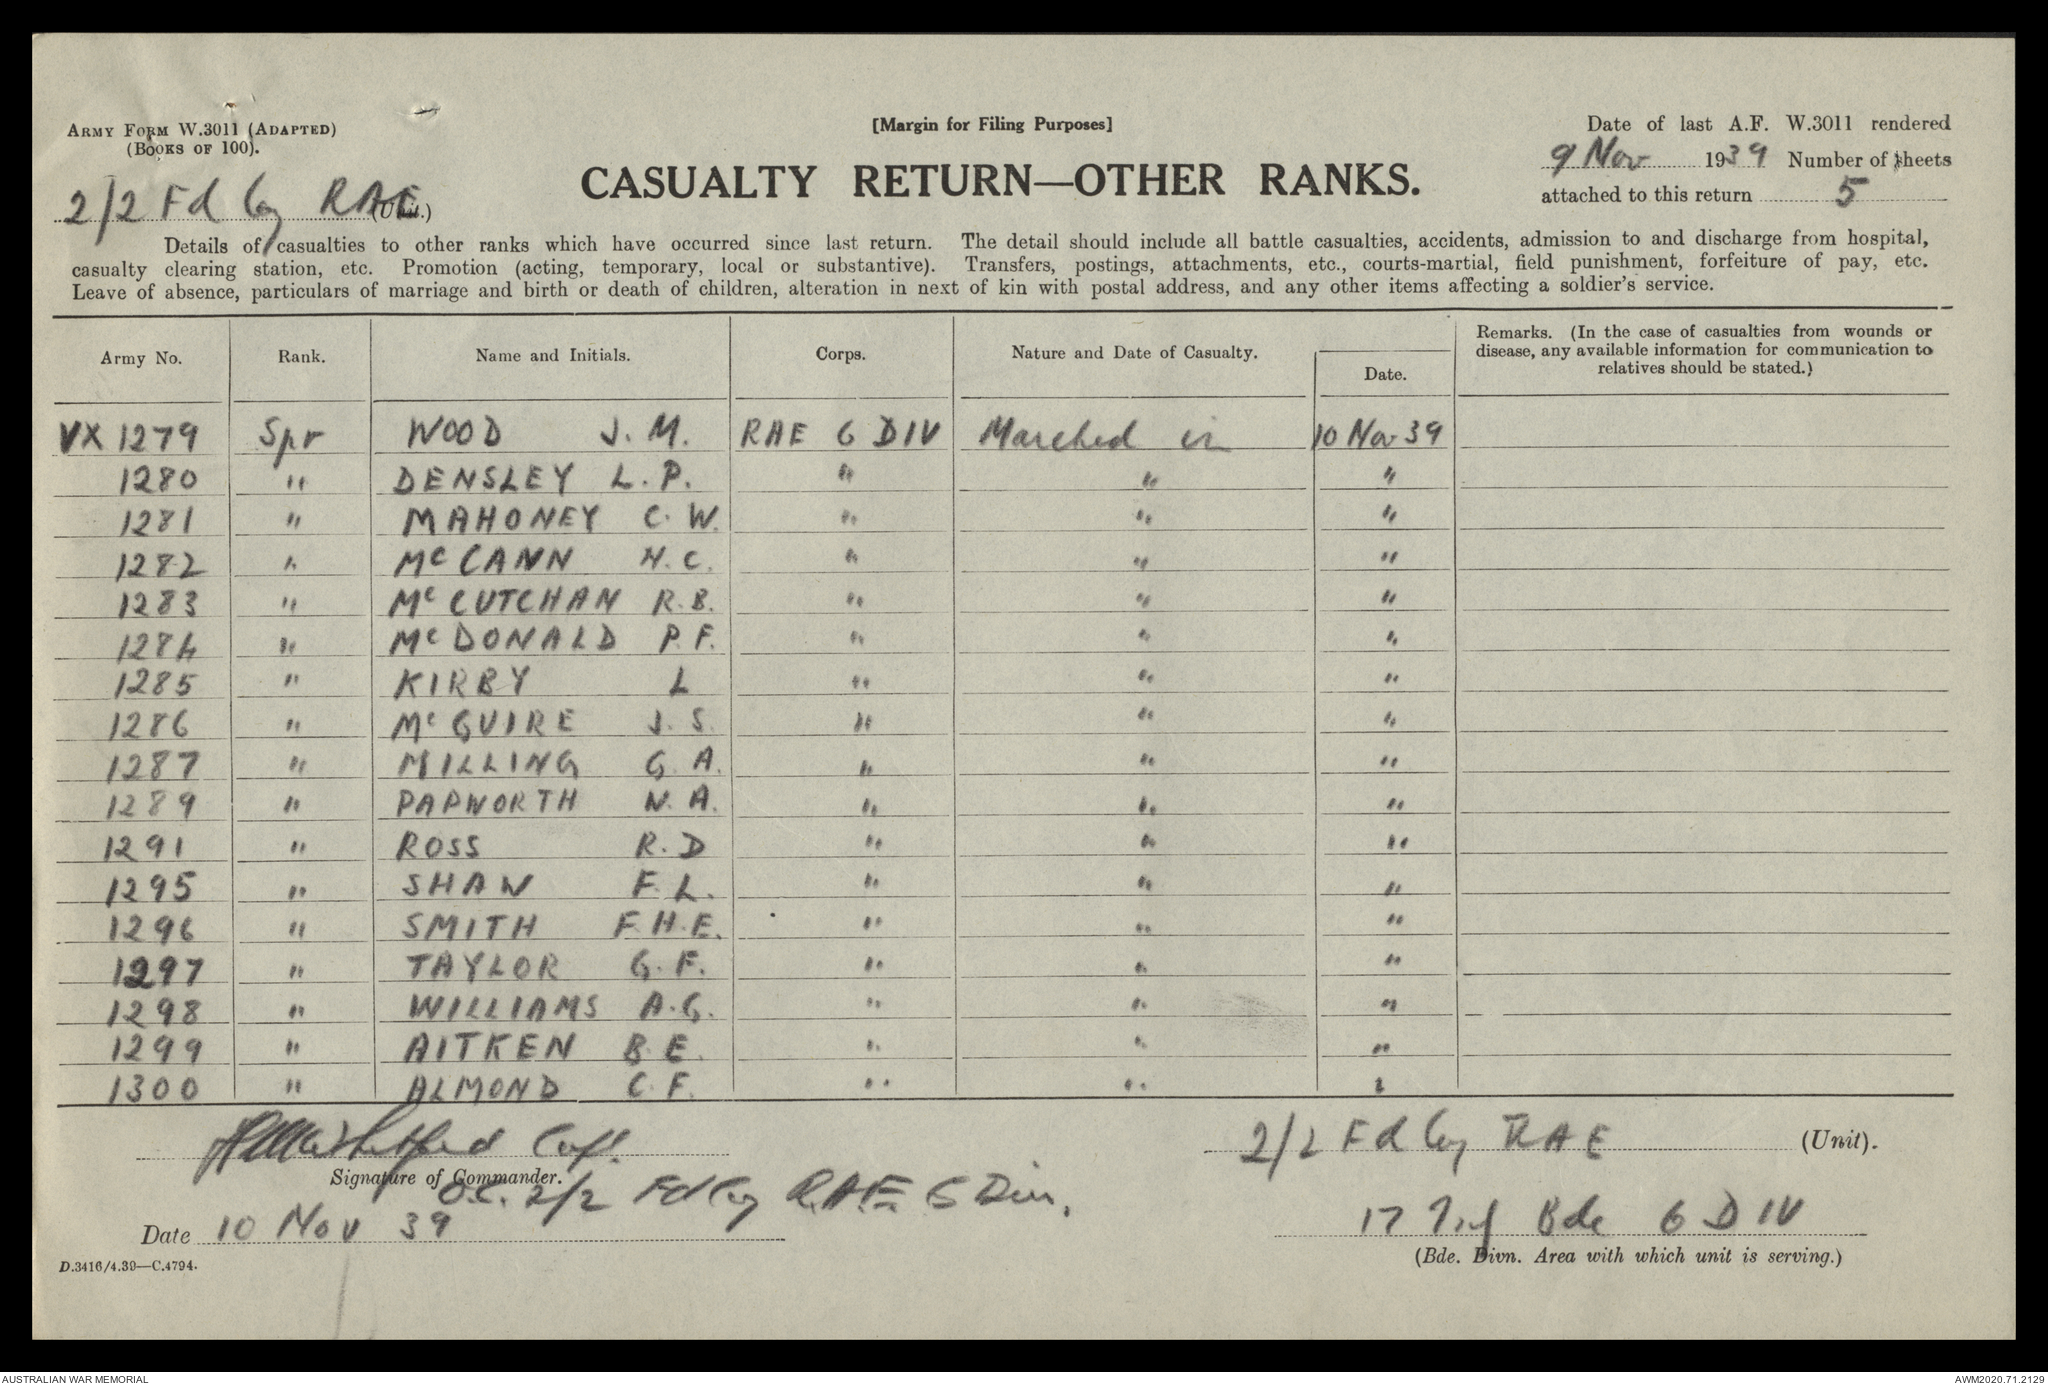 ARMY FORM W.3011 (ADAPTED)
(BOOKS OF 100).
[Margin for Filing Purposes]
Date of last A.F. W.3011 rendered
9 Nov 1939 Number of sheets
attached to this return 5
2/2 Fd Coy RAE (Unit.)
CASUALTY RETURN—OTHER RANKS.
Details of casualties to other ranks which have occurred since last return. The detail should include all battle casualties, accidents, admission to and discharge from hospital,
casualty clearing station, etc. Promotion (acting, temporary, local or substantive). Transfers, postings, attachments, etc., courts-martial, field punishment, forfeiture of pay, etc.
Leave of absence, particulars of marriage and birth or death of children, alteration in next of kin with postal address, and any other items affecting a soldier's service.
Army No. Rank. Name and Initials. Corps. Nature and Date of Casualty. Date. Remarks. (In the case of casualties from wounds or
disease, any available information for communication to
relatives should be stated.)
VX 1279 Spr WOOD J. M. RAE 6 DIV Marched in 10 Nov 39
1280 " DENSLEY L. P. " " "
1281 " MAHONEY C. W. " " "
1282 " McCANN H. C. " " "
1283 " McCUTCHAN R. B. " " "
1284 " McDONALD P. F. " " "
1285 " KIRBY L " " "
1286 " McGUIRE J. S. " " "
1287 " MILLING G. A. " " "
1289 " PAPWORTH N. A. " " "
1291 " ROSS R. D " " "
1295 " SHAW F. L. " " "
1296 " SMITH F. H. E. " " "
1297 " TAYLOR G. F. " " "
1298 " WILLIAMS A. G. " " "
1299 " AITKEN B. E. " " "
1300 " ALMOND C. F. " " "
Capt.
Signature of Commander.
O.C. 2/2 Fd Coy R.A.E. 6 Div.
Date 10 Nov 39
D.3416/4.39—C.4794.
2/2 Fd Coy RAE (Unit).
17 Inf Bde 6 DIV
(Bde. Divn. Area with which unit is serving.)
AUSTRALIAN WAR MEMORIAL
AWM2020.71.2129